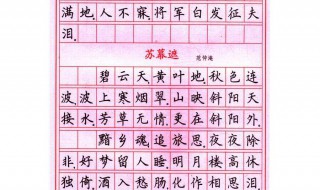 满地,人不寐,将军白发征夫
泪.
苏幕遮 范仲淹
碧云天,黄叶地,秋色连
波,波上寒烟翠.山映斜阳天
接水,芳草无情,更在斜阳外.
黯乡魂,追旅思,夜夜除
非,好梦留人睡.明月楼高休
独倚,酒入愁肠,化作相思泪.